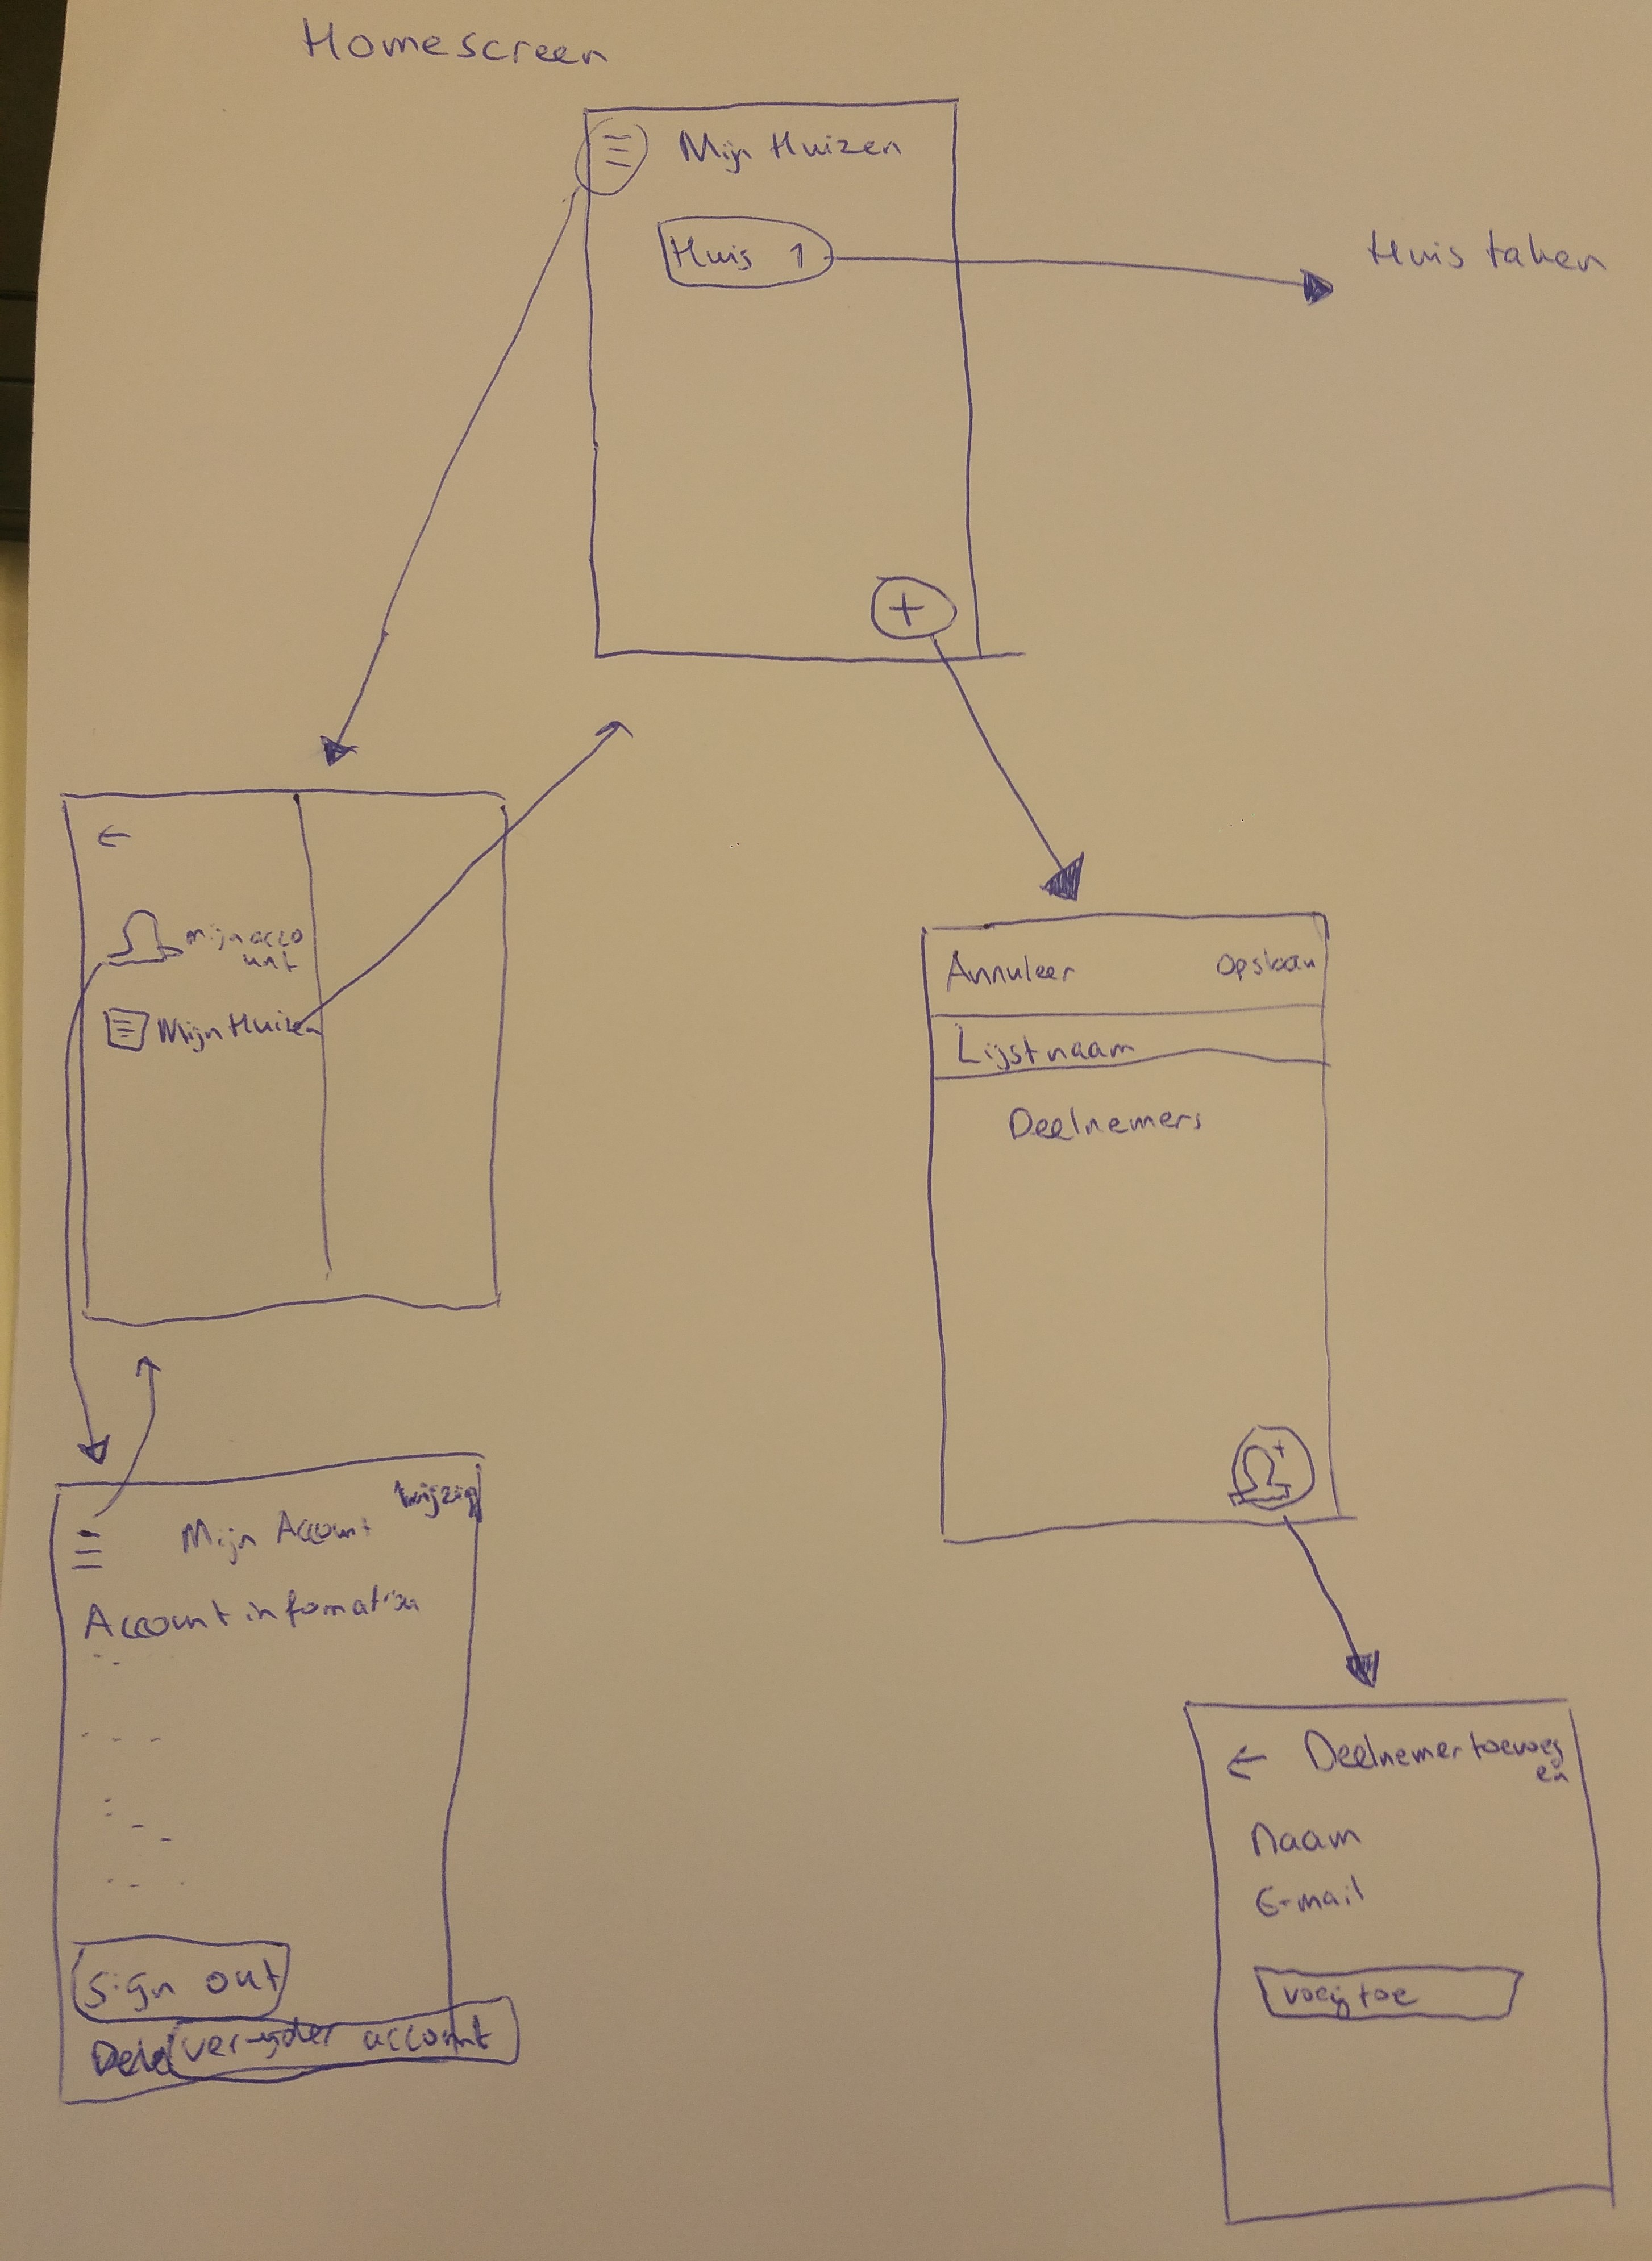 Homescreen
Mijn Huizen
Huis 1
Huis taken
+
mijn acco
unt
Mijn Huizen
Annuleer Opslaan
Lijstnaam
Deelnemers
+
wijzig
Mijn Account
Account infomation
Sign out
verwijder account
Deelnemer toevoeg
en
Naam
E-mail
voeg toe